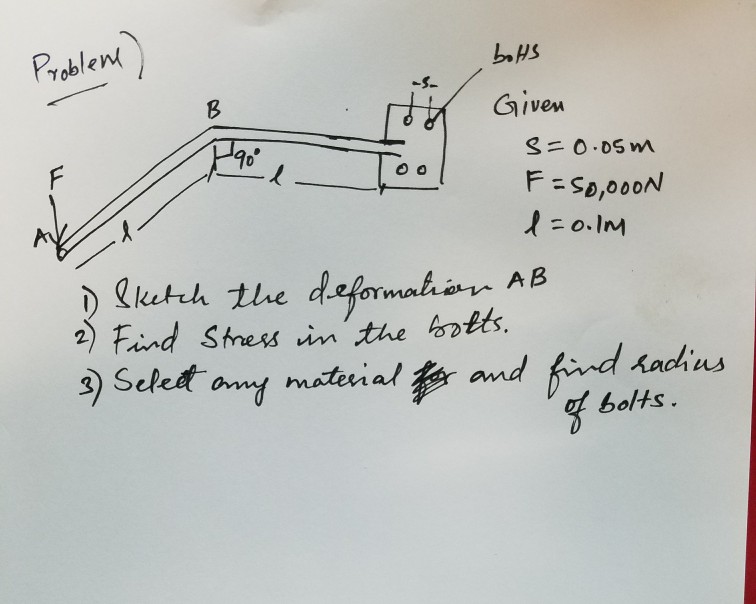 Problem)
bolts
-s-
B
Given
90°
S = 0.05m
F
l
F = 50,000N
A
l
l = 0.1M
1) Sketch the deformation AB
2) Find Stress in the bolts.
3) Select any material and find radius
of bolts.